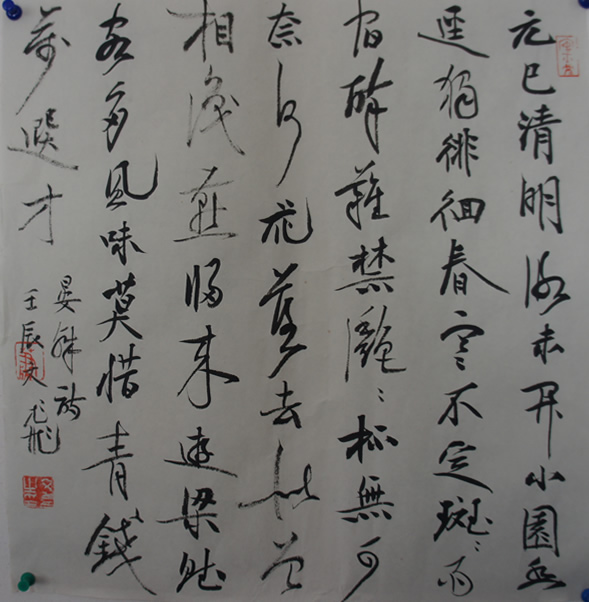 元巳清明假未開小園幽
徑獨徘徊春寒不定斑〻雨
宿醉難禁灩〻杯無可
奈何花落去似曾
相識燕歸來遊梁賦
客多風味莫惜青錢
萬選才
晏殊詩
壬辰